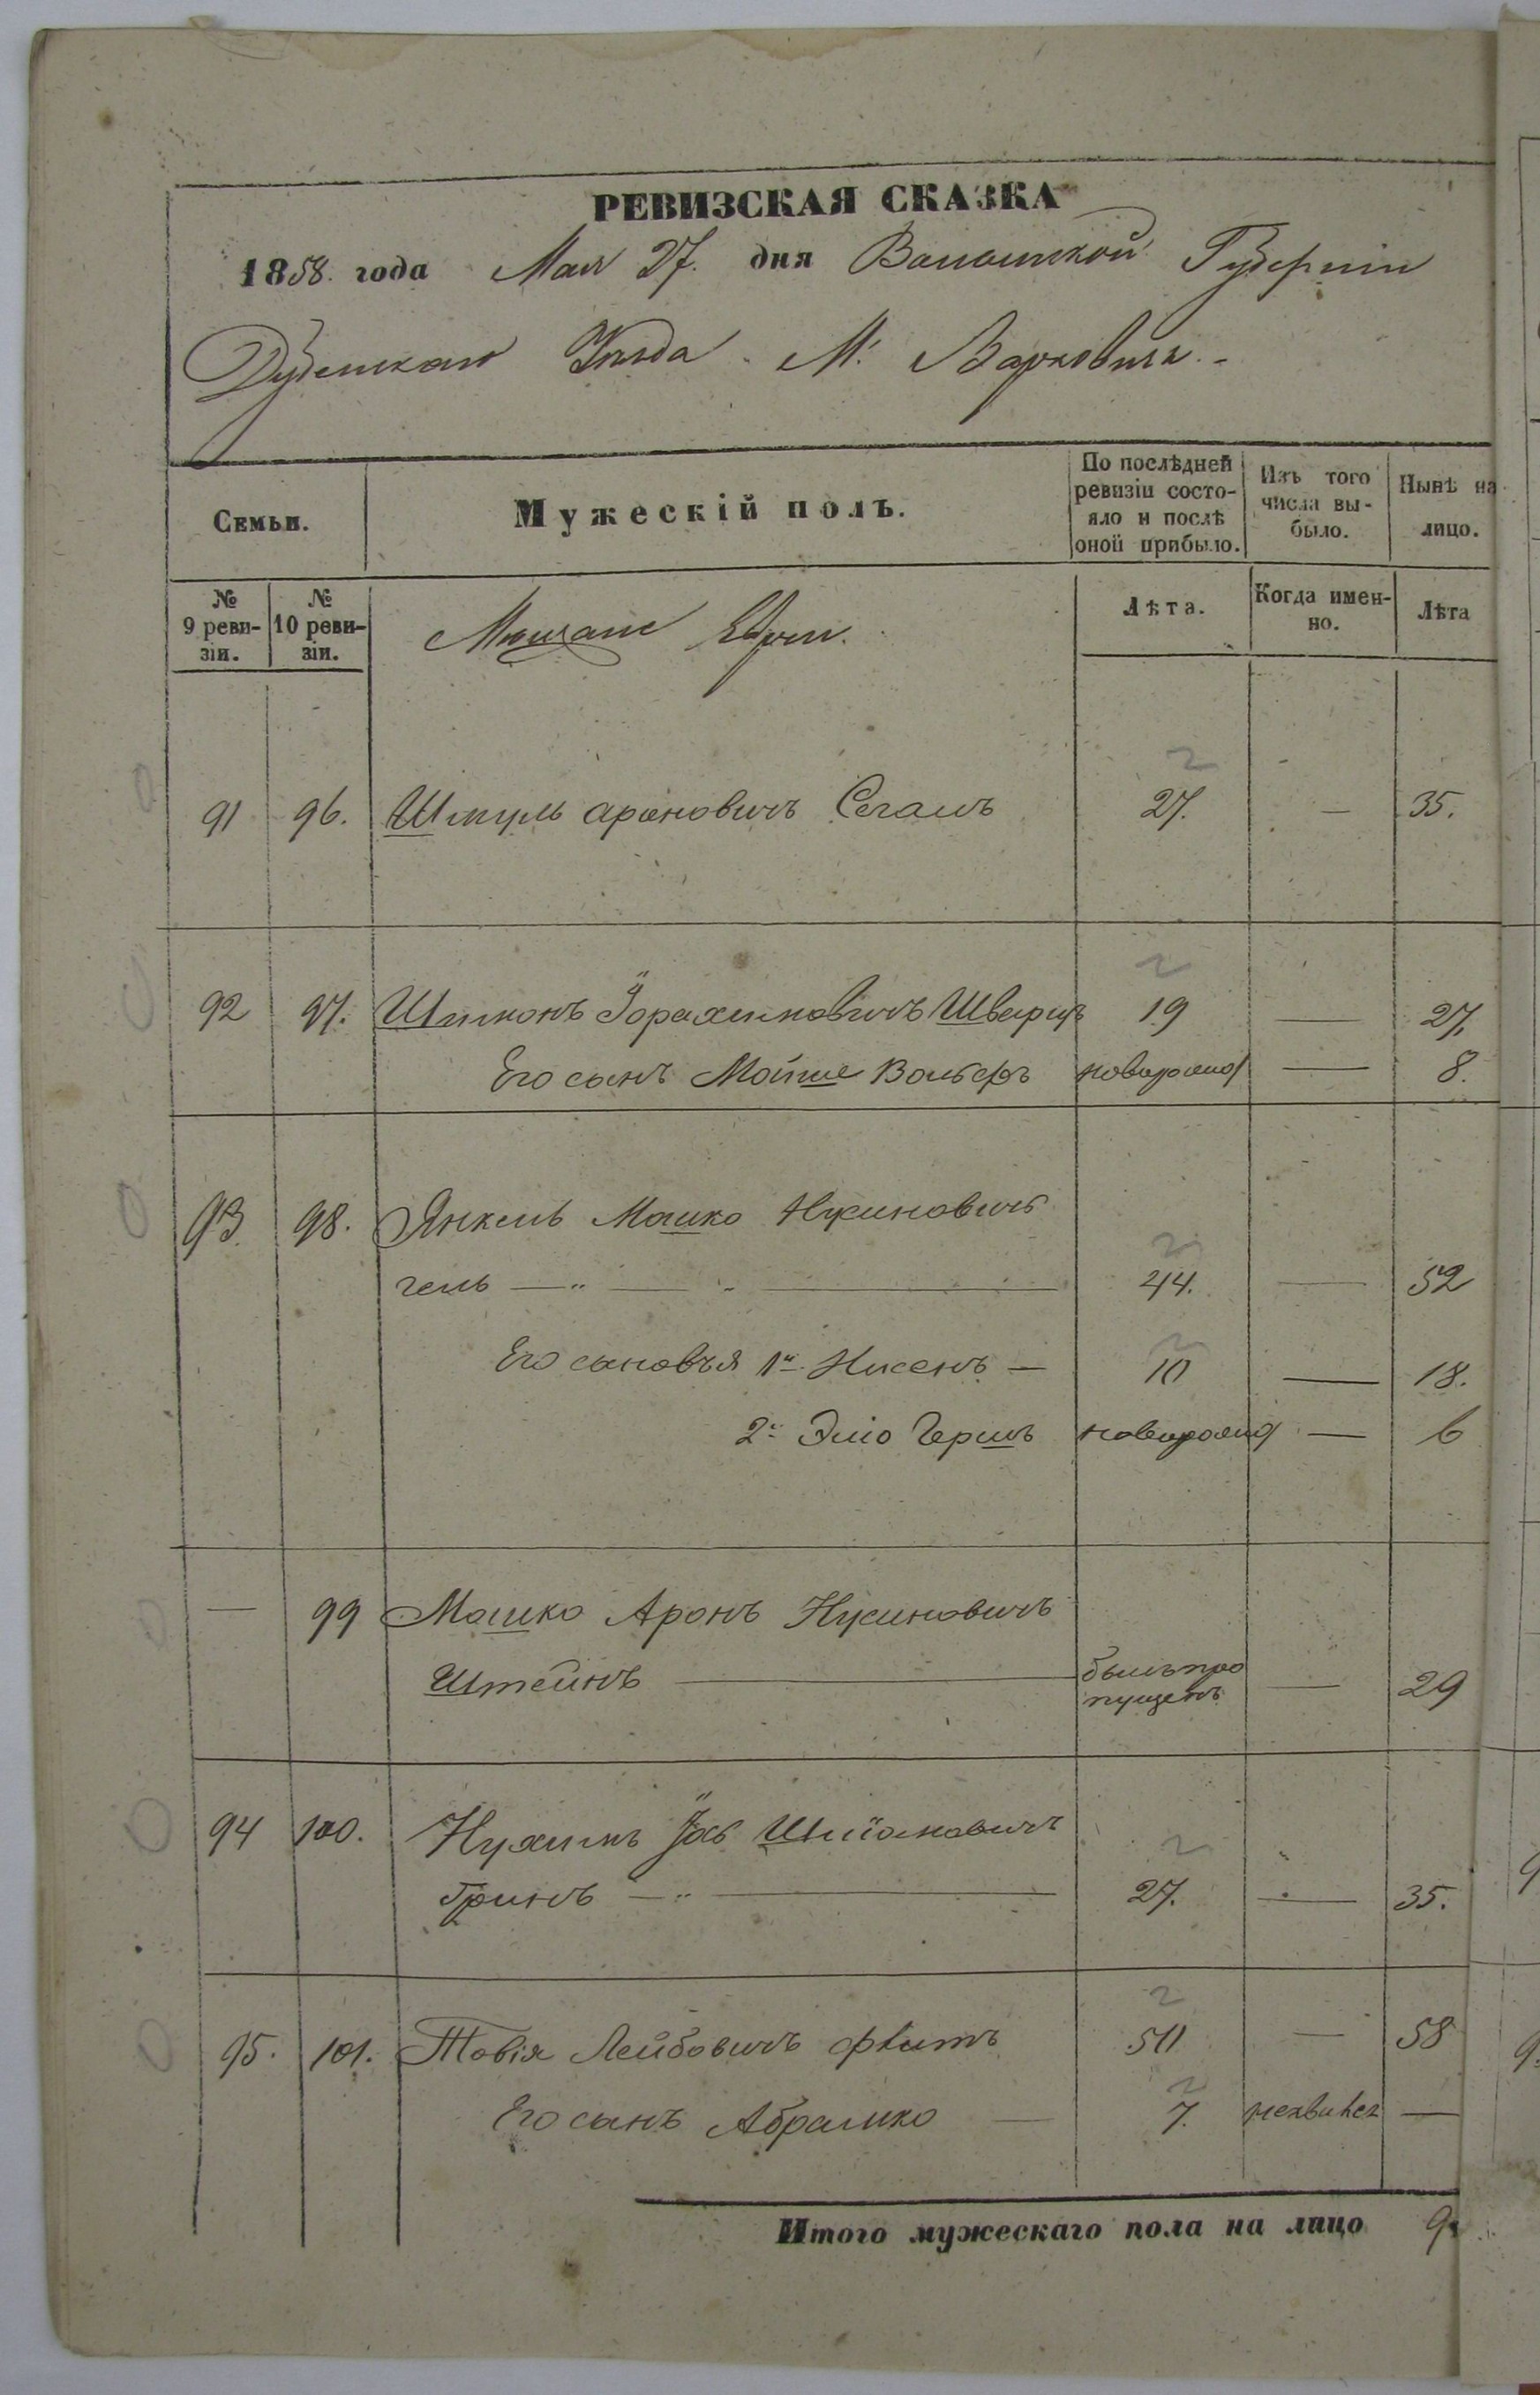 РЕВИЗСКАЯ СКАЗКА
1858. года Мая 27. дня Волынской Губерніи
Дубенскаго Уѣзда. М. Варковичъ.
Семьи. Мужескій полъ. По послѣдней ревизіи состояло и послѣ оной прибыло. Изъ того числа выбыло. Нынѣ на лицо.
№ 9 ревизіи. № 10 ревизіи. Мѣщане Евреи. Лѣта. Когда именно. Лѣта
91 96. Шмуль Ароновичъ Сегалъ 27. — 35.
92 97. Шимонъ Шварцъ 19 — 27.
Его сынъ Мойше Вольфъ новорожд — 8.
93. 98. Янкель Мошко Нусиновичъ
44. — 52
Его сыновья 1й Нисенъ — 10 — 18.
2й Эліо Гершъ новорожд — 6
— 99 Мошко Аронъ Нусиновичъ
Штейнъ — былъ про
пущенъ — 29
94 100. Нухимъ
Гринъ — 27. — 35.
95. 101. Товія Лейбовичъ 50 — 58
Его сынъ Абрамко 7. —
Итого мужескаго пола на лицо 9